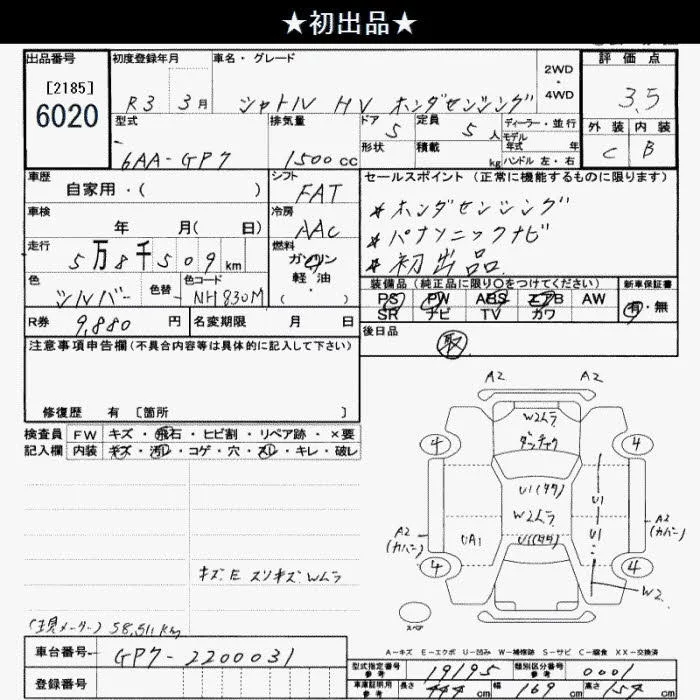 ★初出品★
出品番号
[2185]
6020
初度登録年月
R3 3月
車名・グレード
シャトル HV ホンダセンシング
2WD
・
4WD
評価点
3.5
型式
6AA-GP7
排気量
1500cc
ドア
5
形状
定員
5人
積載
kg
ディーラー・並行
モデル
年式 年
ハンドル 左・右
外装 内装
C B
車歴
自家用・( )
シフト
FAT
セールスポイント(正常に機能するものに限ります)
＊ホンダセンシング
＊パナソニックナビ
＊初出品
車検
年 月( 日)
冷房
AAC
走行
5万8千509km
燃料
ガソリン
軽油・
( )
色
シルバー
色替
色コード
NH830M
装備品(純正品に限り○をつけてください)
PS PW ABS エアB AW
SR ナビ TV カワ
新車保証書
有・無
R券 9,880円
名変期限 月 日
後日品
取
注意事項申告欄(不具合内容等は具体的に記入して下さい)
修復歴 有 [箇所 ]
検査員
記入欄
FW キズ・飛石・ヒビ割・リペア跡・×要
内装 キズ・汚レ・コゲ・穴・スレ・キレ・破レ
キズ E スリキズ Wムラ
(現メーター) 58,511km
A2 A2
W2ムラ
ダッチャク
4 4
U1(タタ)
W2ムラ
U1(タタ)
UA1
U1
U1
A2
(カバー)
A2
(カバー)
4 4
W2
スペア
A-キズ E-エクボ U-凹み W-補修跡 S-サビ C-腐食 XX-交換済
車台番号 GP7-2200031
登録番号
型式指定番号
参考
19195
類別区分番号
参考
0001
車庫証明用
参考
長さ 444cm 幅 169cm 高さ 154cm